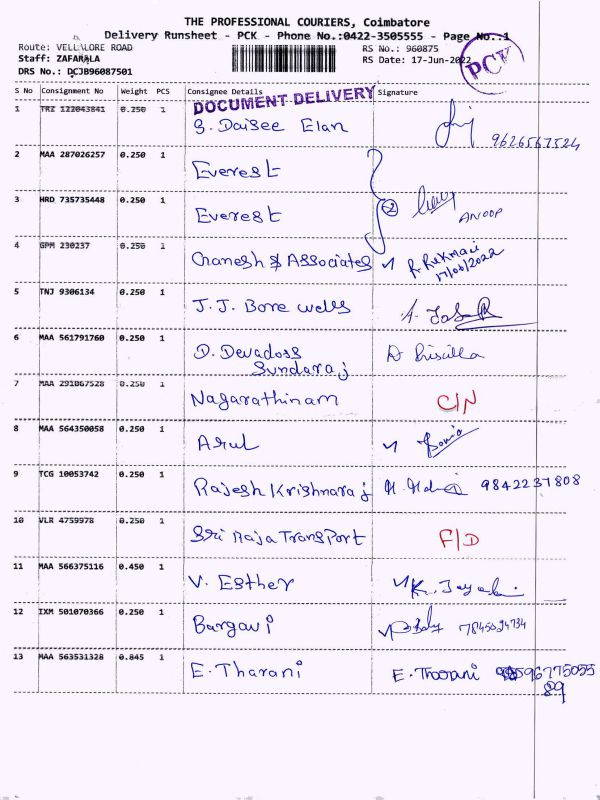 THE PROFESSIONAL COURIERS, Coimbatore
Delivery Runsheet - PCK - Phone No.:0422-3505555 - Page No.:1
Route: VELLALORE ROAD RS No.: 960875
Staff: ZAFARALA RS Date: 17-Jun-2022
DRS No.: DCJB96087501
PCK
S No Consignment No Weight PCS Consignee Details Signature
DOCUMENT DELIVERY
1 TRZ 122043841 0.250 1 S. Daisee Elan 9626567524
2 MAA 287026257 0.250 1 Everest
3 HRD 735735448 0.250 1 Everest 2 ANOOP
4 GPM 230237 0.250 1 Ghanesh & Associates R. Rukmani
17/06/2022
5 TNJ 9306134 0.250 1 J.J. Bore wells
6 MAA 561791760 0.250 1 D. Devadoss D Priscilla
Sundaraj
7 MAA 291067528 0.250 1 Nagarathinam C/N
8 MAA 564350058 0.250 1 Arul Sonia
9 TCG 10053742 0.250 1 Rajesh Krishnaraj 9842237808
10 VLR 4759978 0.250 1 Sri Raja Transport F/D
11 MAA 566375116 0.450 1 V. Esther
12 IXM 501070366 0.250 1 Bargavi
13 MAA 563531328 0.845 1 E. Tharani E. Tharani 596775055
89